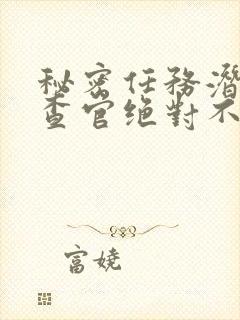 秘密任務潛
查官绝對不
富娆